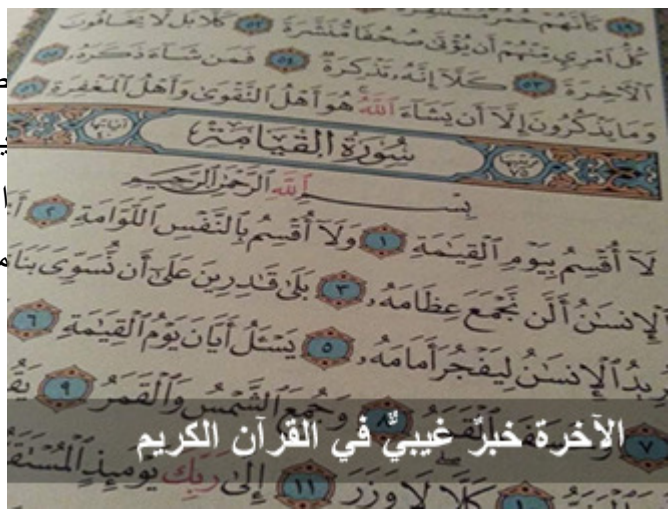 كَأَنَّهُمْ حُمُرٌ مُّسْتَنفِرَةٌ
كُلُّ ٱمْرِئٍ مِّنْهُمْ أَن يُؤْتَىٰ صُحُفًا مُّنَشَّرَةً ٥٢ كَلَّا بَل لَّا يَخَافُونَ
ٱلْآخِرَةَ ٥٣ كَلَّا إِنَّهُۥ تَذْكِرَةٌ ٥٤ فَمَن شَآءَ ذَكَرَهُۥ ٥٥
وَمَا يَذْكُرُونَ إِلَّا أَن يَشَآءَ ٱللَّهُ هُوَ أَهْلُ ٱلتَّقْوَىٰ وَأَهْلُ ٱلْمَغْفِرَةِ ٥٦
سُورَةُ القِيَامَة
بِسْمِ ٱللَّهِ ٱلرَّحْمَٰنِ ٱلرَّحِيمِ
لَآ أُقْسِمُ بِيَوْمِ ٱلْقِيَٰمَةِ ١ وَلَآ أُقْسِمُ بِٱلنَّفْسِ ٱللَّوَّامَةِ ٢
ٱلْإِنسَٰنُ أَلَّن نَّجْمَعَ عِظَامَهُۥ ٣ بَلَىٰ قَٰدِرِينَ عَلَىٰٓ أَن نُّسَوِّىَ
ٱلْإِنسَٰنُ لِيَفْجُرَ أَمَامَهُۥ ٥ يَسْـَٔلُ أَيَّانَ يَوْمُ ٱلْقِيَٰمَةِ ٦
٧ وَخَسَفَ ٱلْقَمَرُ ٨ وَجُمِعَ ٱلشَّمْسُ وَٱلْقَمَرُ ٩
كَلَّا لَا وَزَرَ ١١ إِلَىٰ رَبِّكَ يَوْمَئِذٍ
الآخرة خبرٌ غيبيٌّ في القرآن الكريم